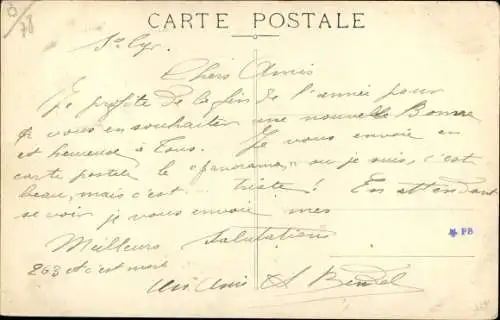 78
CARTE POSTALE
St Cyr.
Chers Amis
Je profite de la fin de l'année pour
vous en souhaiter une nouvelle Bonne
et heureuse à Tous. Je vous envoie en
carte postale le "panorama" ou je suis, c'est
beau, mais c'est ... triste! En attendant
se voir je vous envoie mes
Meilleurs Salutations
263 et c'est mort
PB